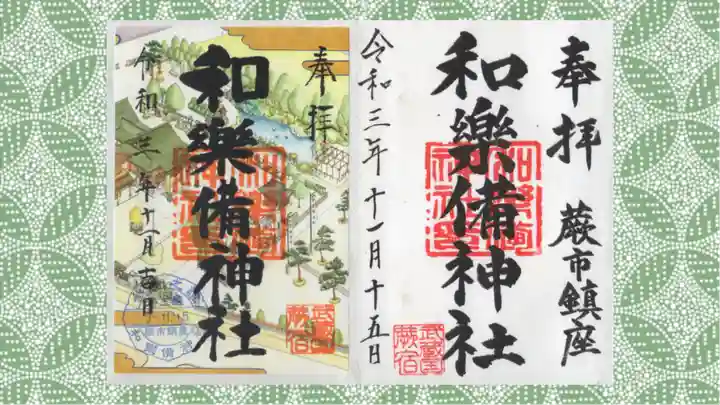 奉拝
蕨市鎮座
和樂備神社
令和三年十一月十五日
武蔵
蕨宿
奉拝
和樂備神社
令和三年十一月吉日
武蔵
蕨宿
11.15